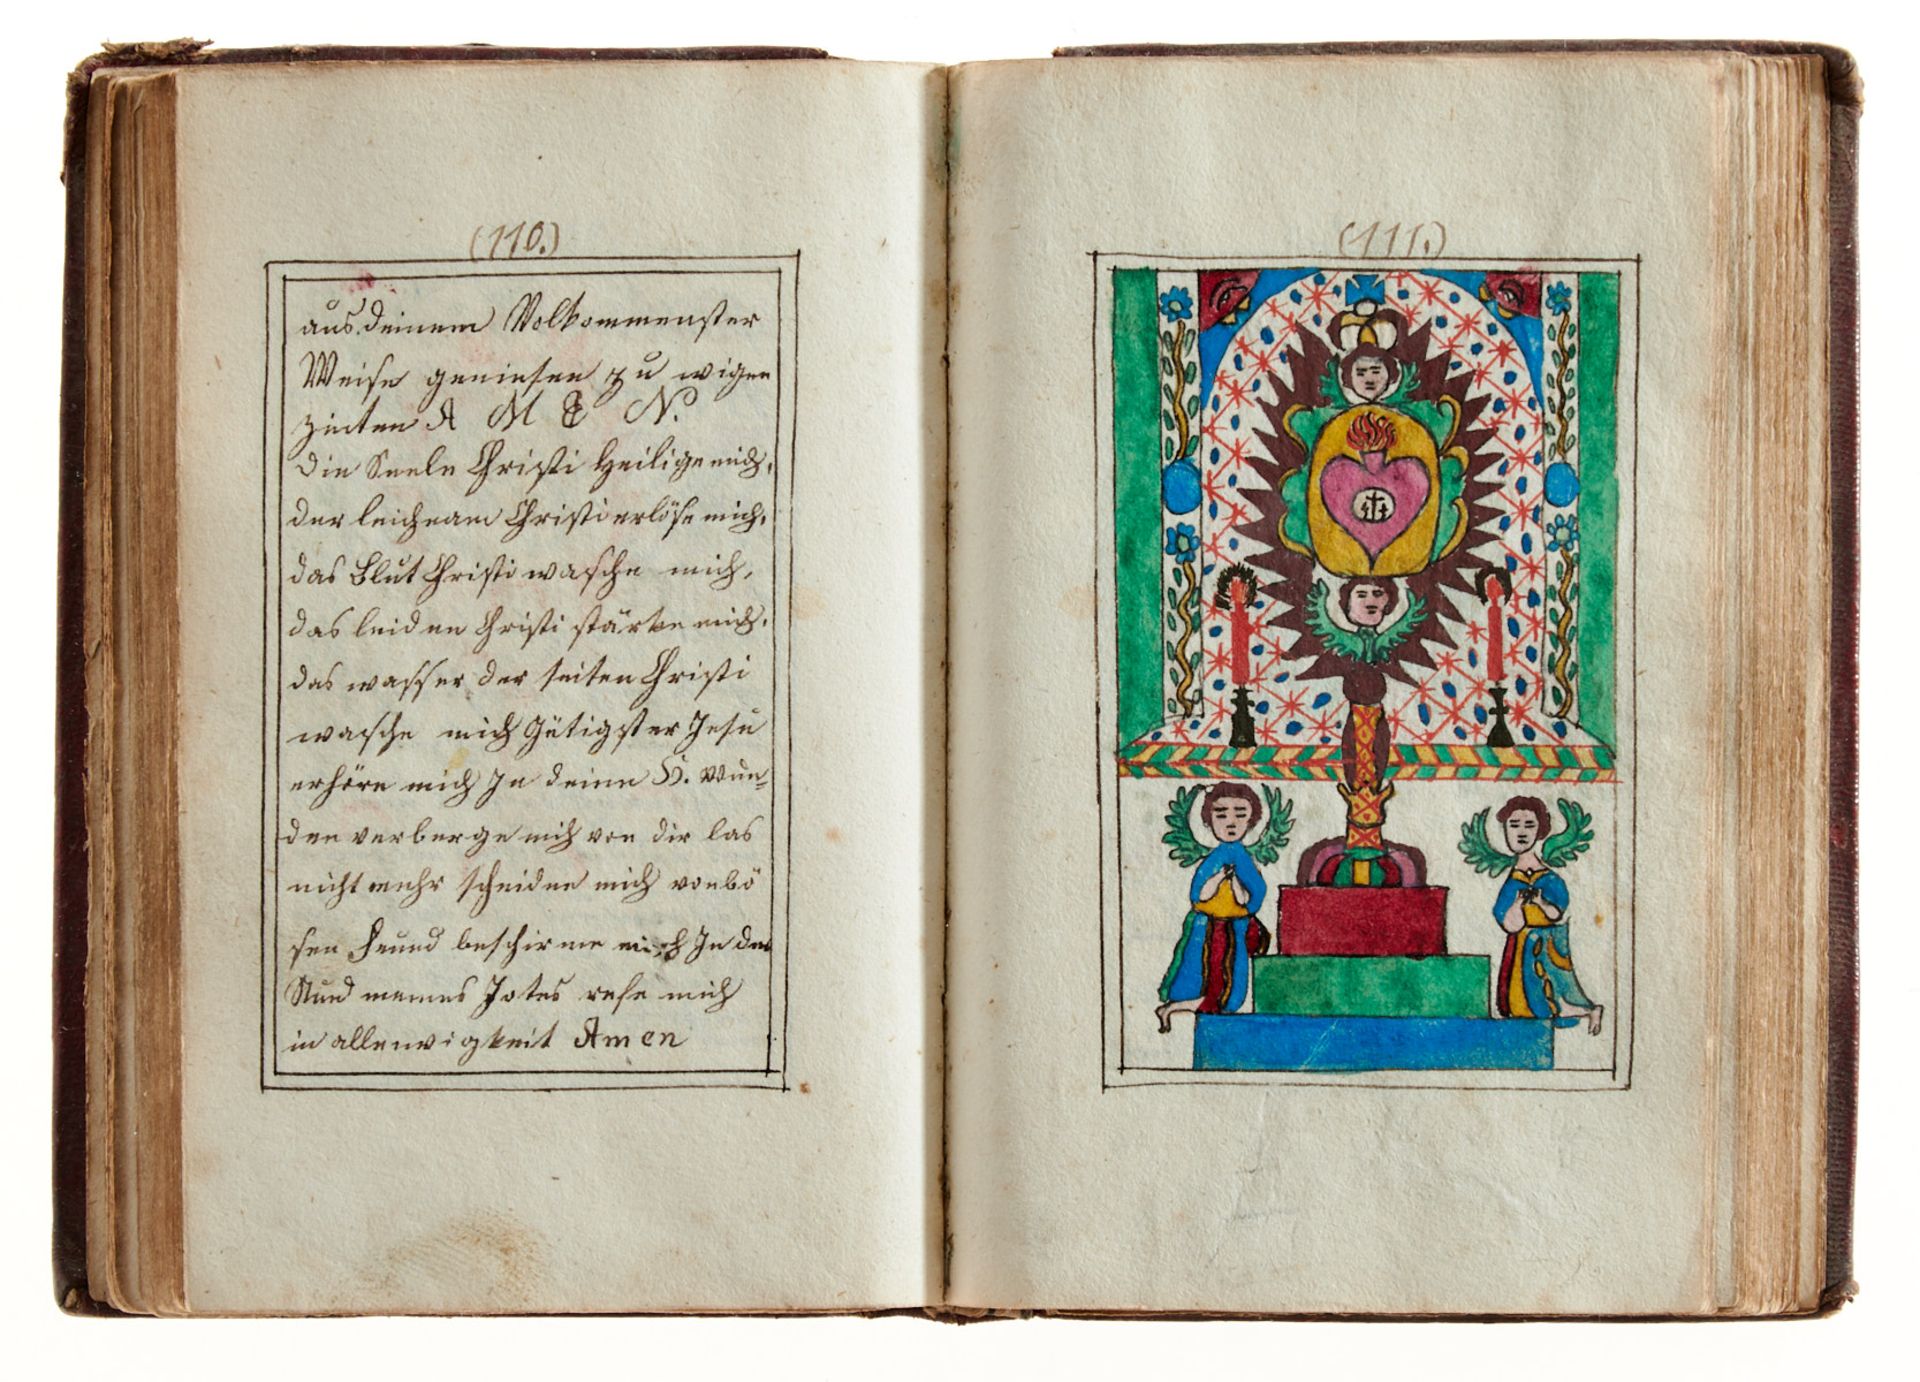 (110.)
aus deinem Volkommenster
Weise geniesen zu wigen
zeiten A M E N.
die Seele Christi Heilige mich,
der leichnam Christi erlöse mich,
das Blut Christi wasche mich,
das leiden Christi stärke mich,
das wasser der seiten Christi
wasche mich Gütigster Jesu
erhöre mich In deine H. wun=
den verberge mich von dir las
nicht mehr scheiden mich von bö
sen feund beschirme mich In der
Stund meines Todes rufe mich
in alle ewigkeit Amen
(111.)